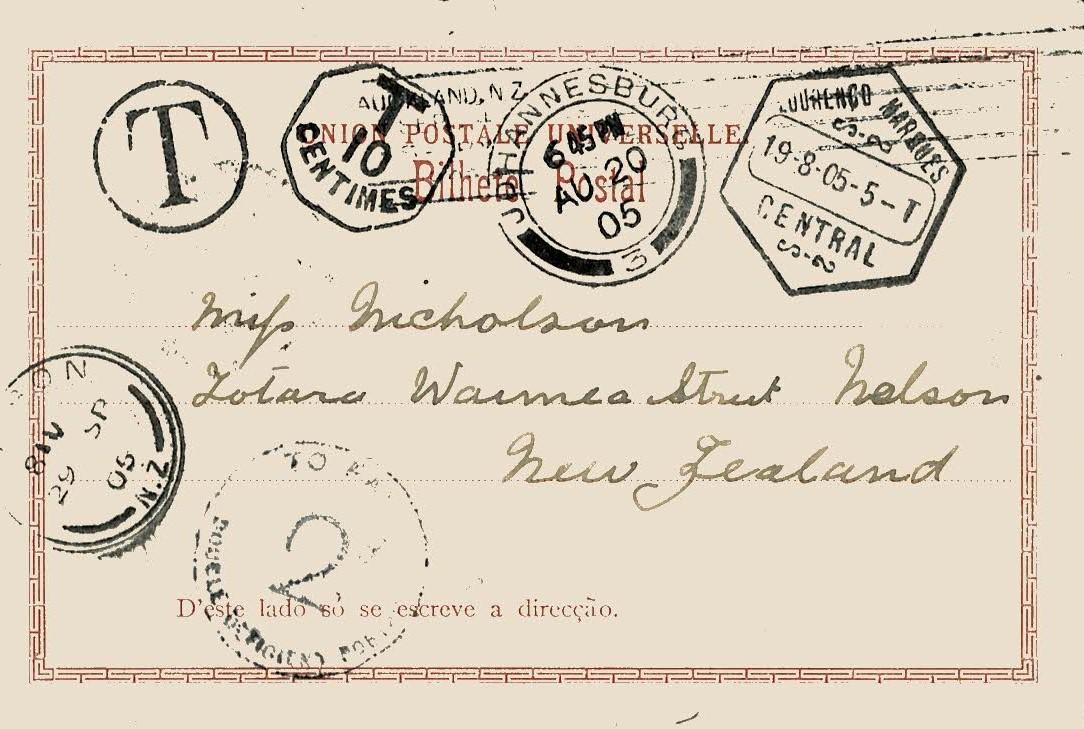 T
T
10
CENTIMES
AUCKLAND, N Z
JOHANNESBURG
6 45 PM
AU 20
05
3
LOURENÇO MARQUES
S-2
19-8-05-5-T
CENTRAL
S-2
UNION POSTALE UNIVERSELLE.
Bilhete Postal
Miss Nicholson
Totara Waimea Street Nelson
New Zealand
SP
29
05
N.Z
TO
2
DOUBLE DEFICIENT
D'este lado só se escreve a direcção.